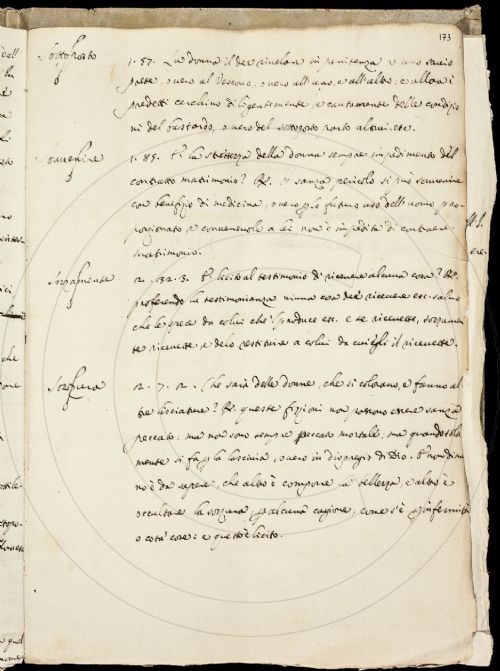 173
Sottoposto
1. 57. La donna il dee rivelare in penitenza a uno savio
prete, overo al Vescovo, overo all'uno, e all'altro: e allora i
predetti cerchino diligentemente, e cautamente delle condizio
ni del bastardo, overo del sottoposto parto altrui. etc.
Sovvenire
1. 85. È la strettezza della donna sempre impedimento del
contratto matrimonio? R. se sanza pericolo si può sovvenire
con benefizio di medicina, overo per lo futuro uso dell'uomo pro
porzionato, e convenevole a lei non è impedita di contraere
matrimonio.
Sozzamente
2. 132. 3. È licito al testimonio di ricevere alcuna cosa? R.
proferendo la testimonianza niuna cosa dee ricevere etc. salvo
che le spese da colui che 'l produce etc. e se ricevette, sozzamen
te ricevette, e deelo restituire a colui da cui egli il ricevette.
Sozzura
2. 7. 2. Che sarà delle donne, che si colorano, e fanno al
tre lisciature? R. queste fizioni non possono essere sanza
peccato: ma non sono sempre peccato mortale, ma quando sola
mente si fa per la lascivia, overo in dispregio di Dio. E nondime
no è da sapere, che altro è componere la bellezza, e altro è
occultare la sozzura per alcuna cagione, come s'è per infermità
o cota' cose: e questo è licito.